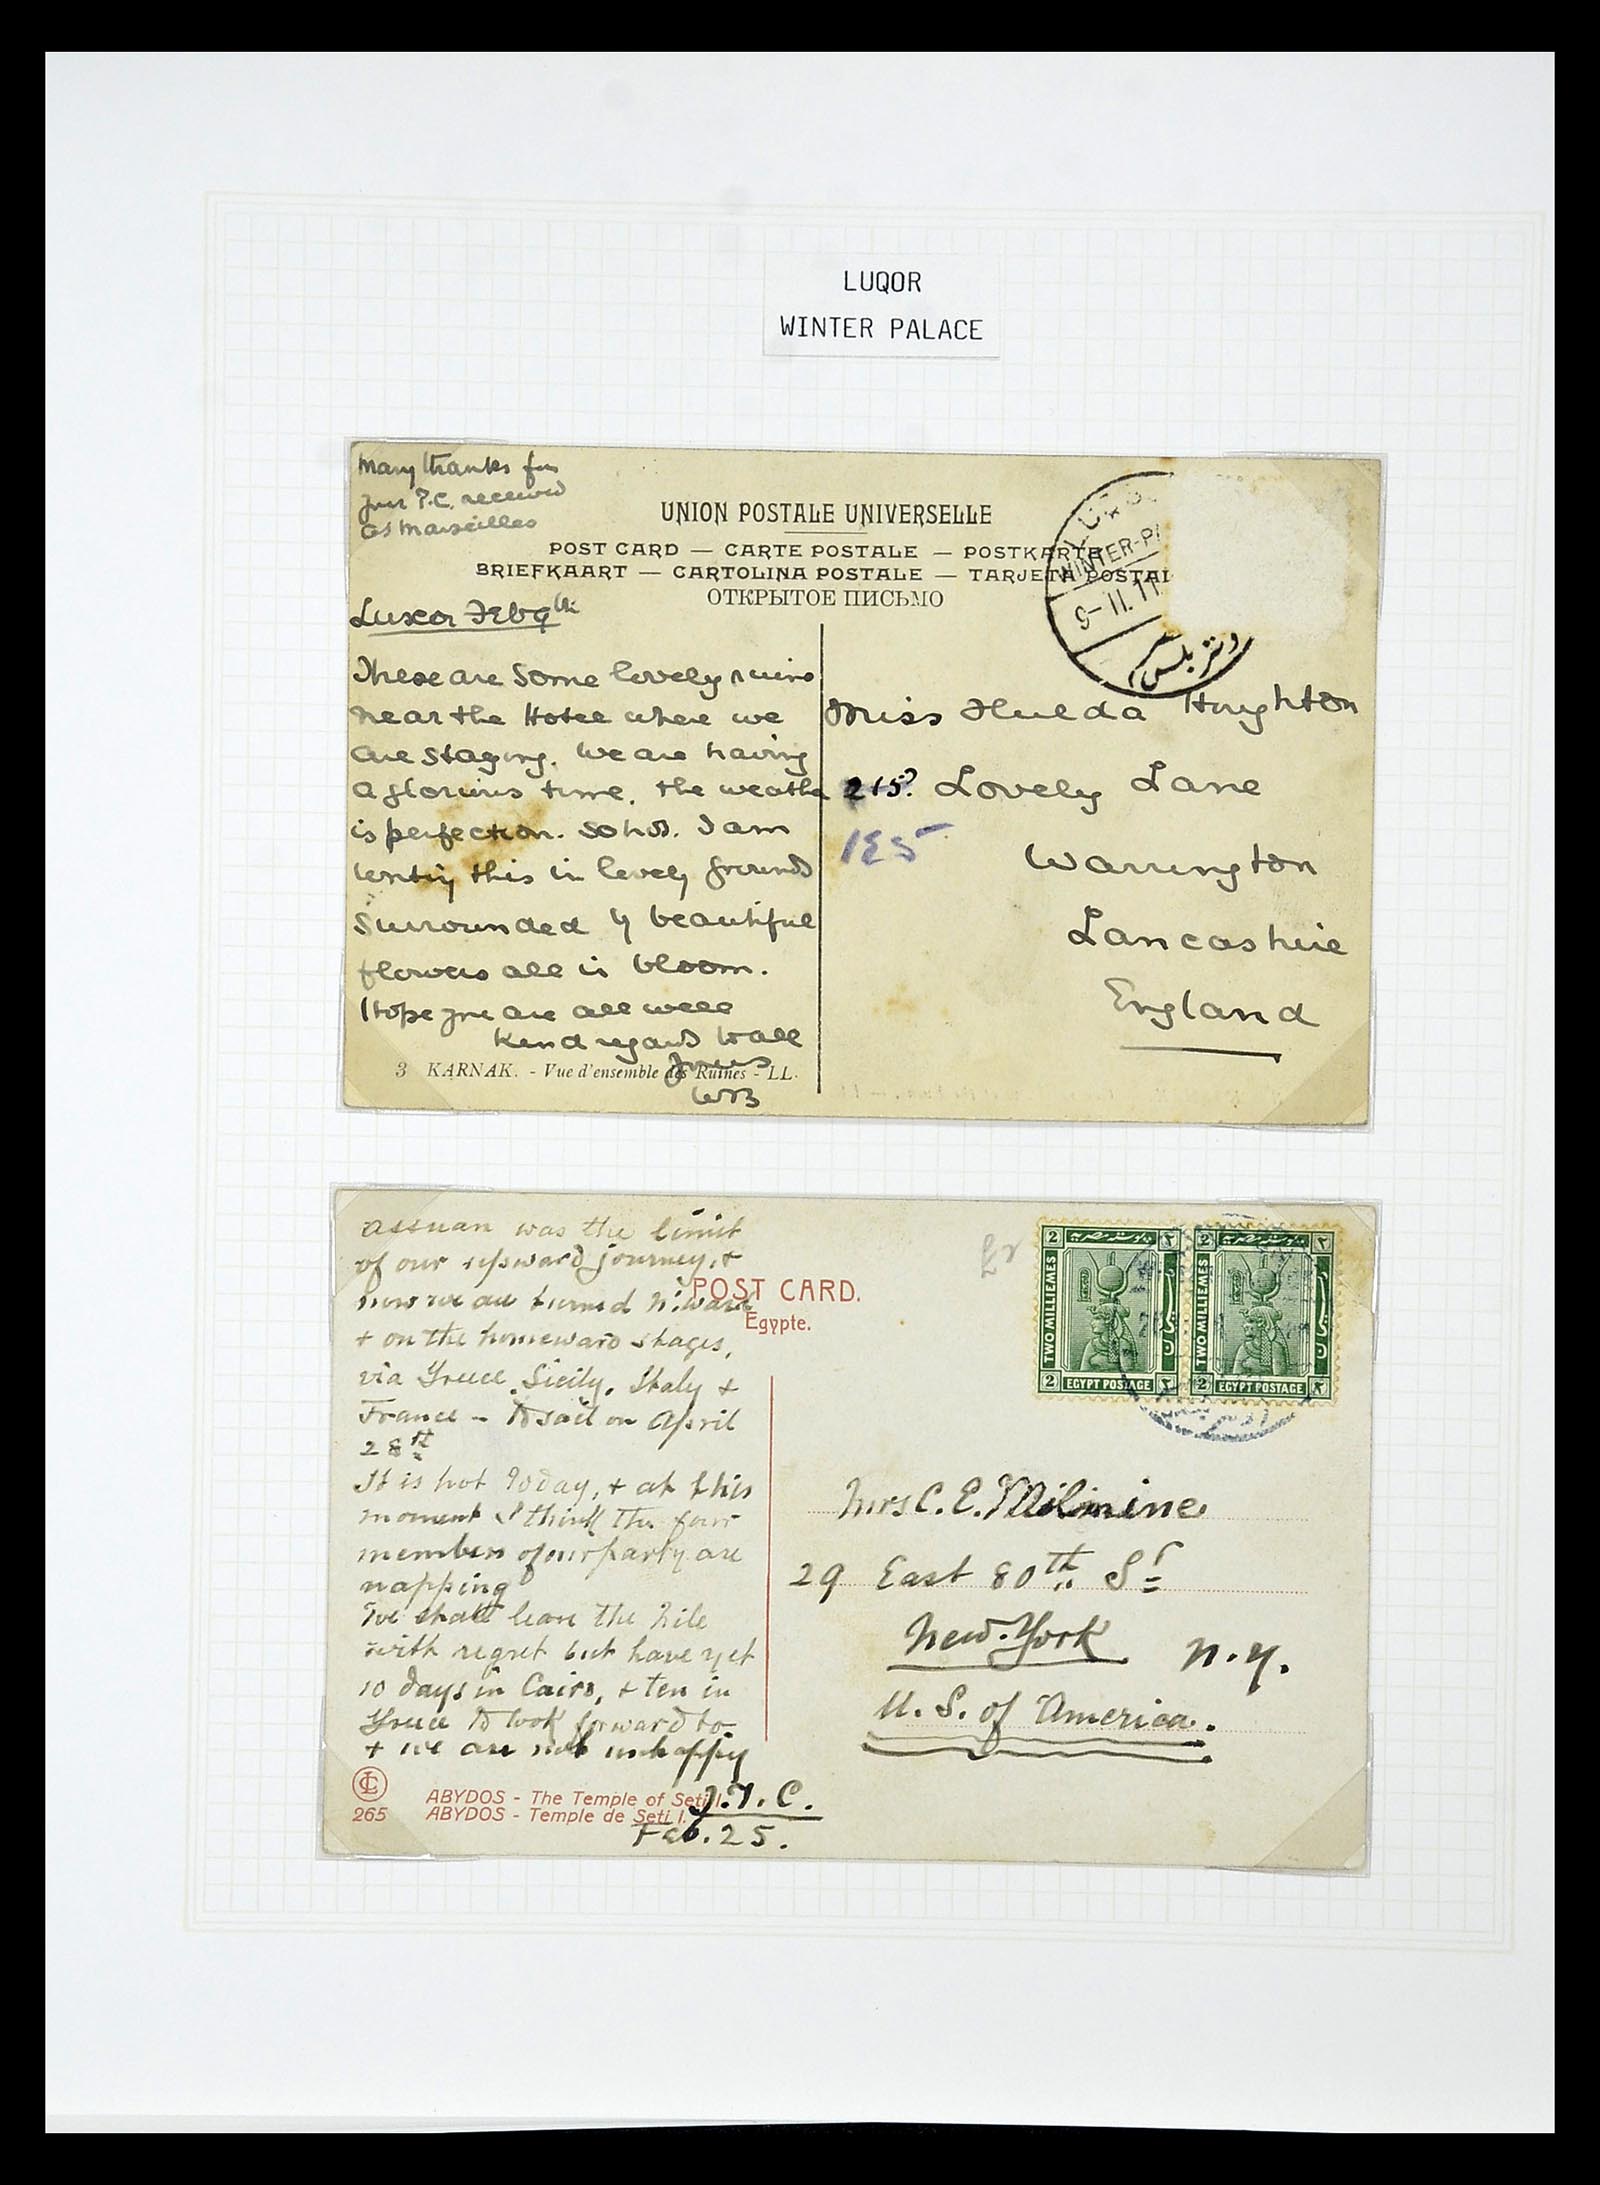 LUQOR
WINTER PALACE
Many thanks for
your P.C. received
at Marseilles
UNION POSTALE UNIVERSELLE
POST CARD — CARTE POSTALE — POSTKARTE
BRIEFKAART — CARTOLINA POSTALE — TARJETA POSTAL
ОТКРЫТОЕ ПИСЬМО
WINTER-PA
9-II.11
ونتر بلس
Luxor Feb 9th
These are some lovely ruins
near the Hotel where we
are staying. We are having
a glorious time. The weather
is perfection. So hot. I am
writing this in lovely grounds
surrounded by beautiful
flowers all in bloom.
I hope you are all well
Kind regards to all
Yours
WB
3 KARNAK. - Vue d'ensemble des Ruines - LL.
Miss Hulda Houghton
215? Lovely Lane
185
Warrington
Lancashire
England
Assuan was the limit
of our upward journey, +
now we are turned N. ward
+ on the homeward stages,
via Greece, Sicily, Italy +
France - to sail on April
28th
It is hot today, + at this
moment I think the four
members of our party are
napping
We shall leave the Nile
with regret but have yet
10 days in Cairo, + ten in
Greece to look forward to
+ we are not unhappy
J.T.C.
Feb. 25.
POST CARD.
Egypte.
LC
265
ABYDOS - The Temple of Seti I.
ABYDOS - Temple de Seti I.
2 TWO MILLIEMES 2 EGYPT POSTAGE ٢
2 TWO MILLIEMES 2 EGYPT POSTAGE ٢
Mrs C. E. Milmine
29 East 80th St
New-York N.Y.
U. S. of America.